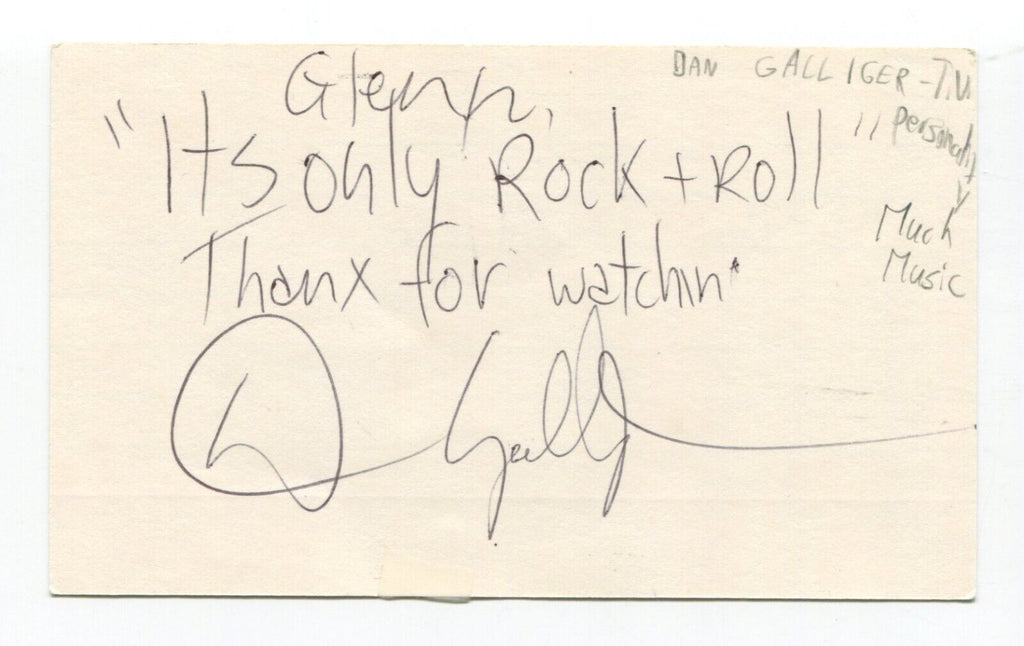 Glenn,
"Its only Rock + Roll"
Thanx for watchin'
D Gallagher
DAN GALLIGER - T.V.
personality
Much
Music